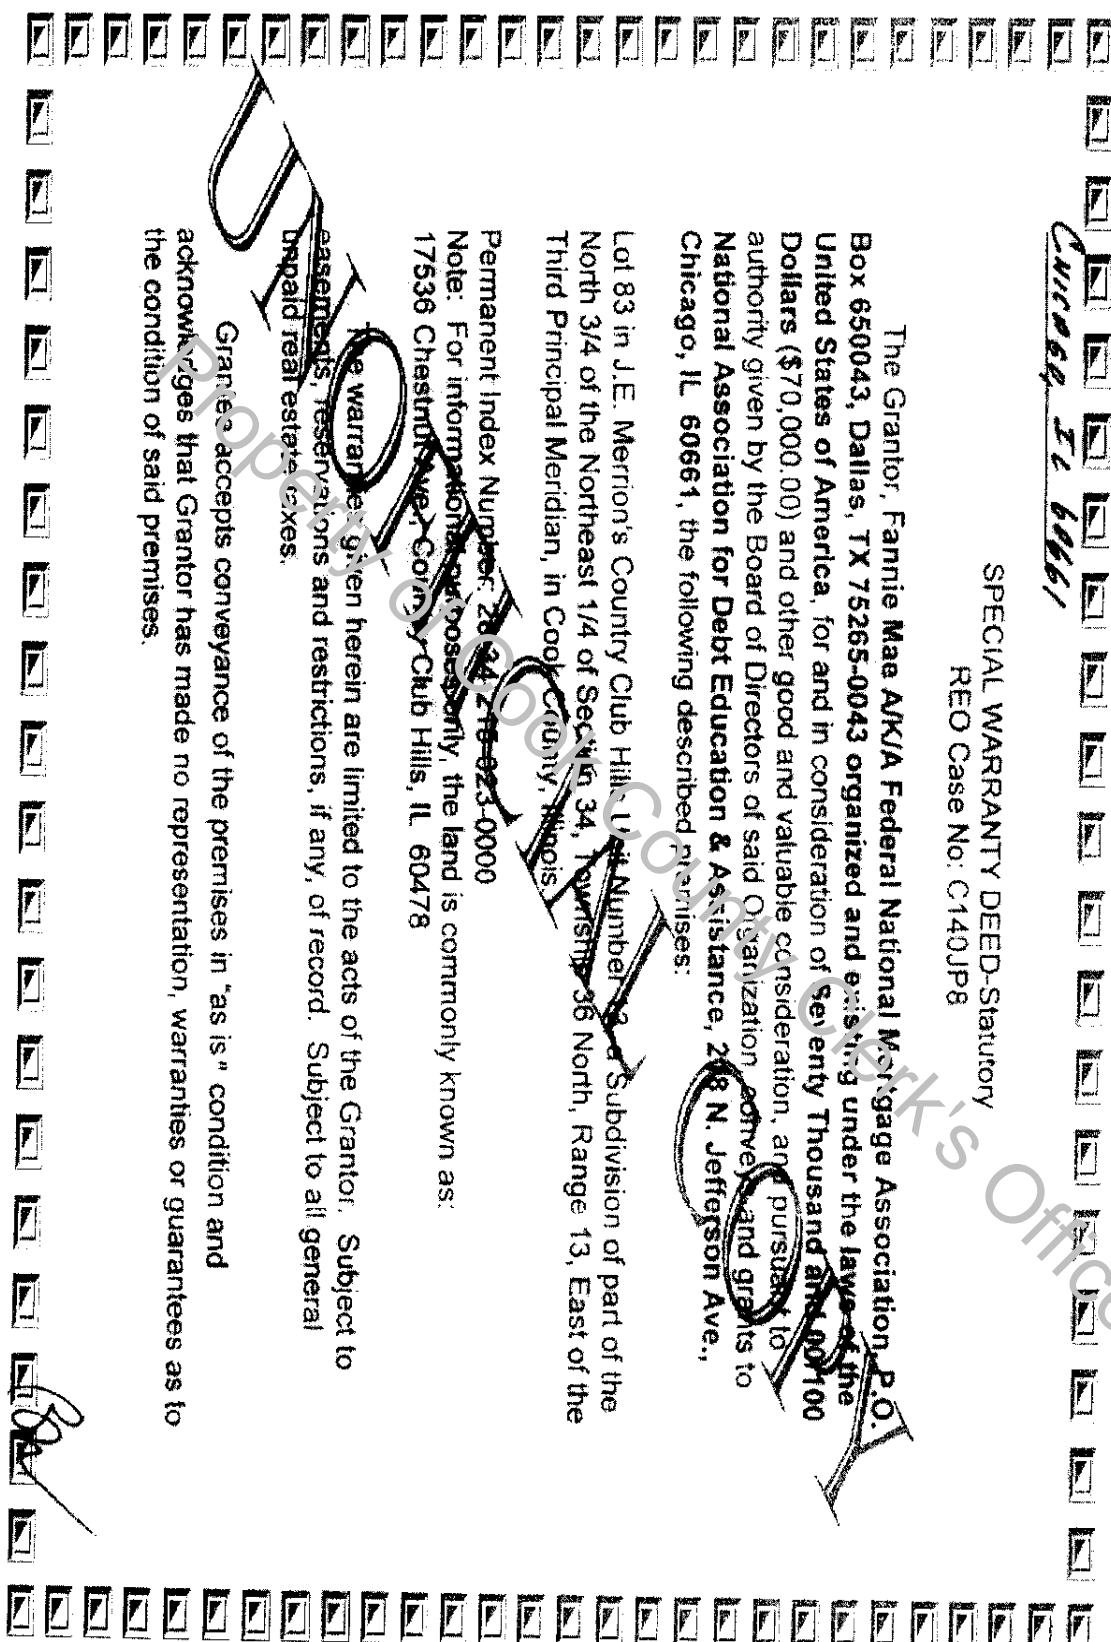 Chicago, IL 60661
SPECIAL WARRANTY DEED-Statutory
REO Case No: C140JP8
The Grantor, Fannie Mae A/K/A Federal National Mortgage Association, P.O.
Box 650043, Dallas, TX 75265-0043 organized and existing under the laws of the
United States of America, for and in consideration of Seventy Thousand and 00/100
Dollars ($70,000.00) and other good and valuable consideration, and pursuant to
authority given by the Board of Directors of said Organization, conveys and grants to
National Association for Debt Education & Assistance, 218 N. Jefferson Ave.,
Chicago, IL 60661, the following described premises:
Lot 83 in J.E. Merrion's Country Club Hills Unit Number a Subdivision of part of the
North 3/4 of the Northeast 1/4 of Section 34, Township 36 North, Range 13, East of the
Third Principal Meridian, in Cook County, Illinois.
Permanent Index Number: 28-34-215-023-0000
Note: For informational purposes only, the land is commonly known as:
17536 Chestnut Ave., Country Club Hills, IL 60478
The warranties given herein are limited to the acts of the Grantor. Subject to
easements, reservations and restrictions, if any, of record. Subject to all general
unpaid real estate taxes.
Grantee accepts conveyance of the premises in "as is" condition and
acknowledges that Grantor has made no representation, warranties or guarantees as to
the condition of said premises.
UNOFFICIAL COPY
Property of Cook County Clerk's Office